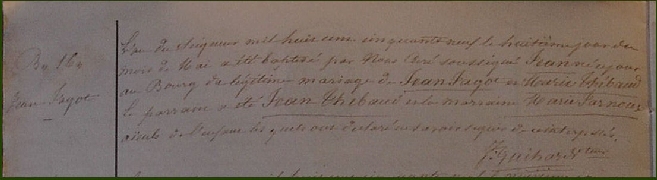 L'an du Seigneur mil huit cent cinquante neuf le huitième jour du
Bn 16
mois de Mai a été baptisé par Nous Curé soussigné Jean né ce jour
au Bourg du légitime mariage de Jean Fagot et Marie Thibaud
Jean Fagot
le parrain a été Jean Thibaud et la marraine Marie
de l'enfant les quels ont déclaré ne savoir signer de ce interpellés.
Guihard